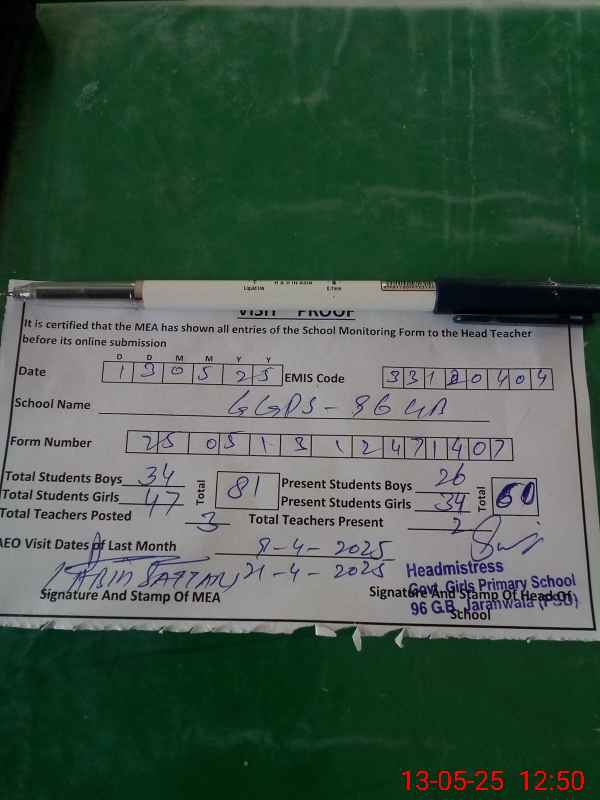 VISIT PROOF
It is certified that the MEA has shown all entries of the School Monitoring Form to the Head Teacher
before its online submission
D D M M Y Y
Date 1 3 0 5 2 5 EMIS Code 3 3 1 2 0 4 0 4
School Name GGPS - 96 GB
Form Number 25 05 1 3 1 2 4 7 1 4 0 7
Total Students Boys 34 Total 81 Present Students Boys 26 Total 60
Total Students Girls 47 Present Students Girls 34
Total Teachers Posted 3 Total Teachers Present 2
AEO Visit Dates of Last Month 8-4-2025
21-4-2025
Headmistress
Govt. Girls Primary School
96 G.B. Jaranwala (FSD)
Signature And Stamp Of MEA Signature And Stamp Of Head Of
School
13-05-25 12:50